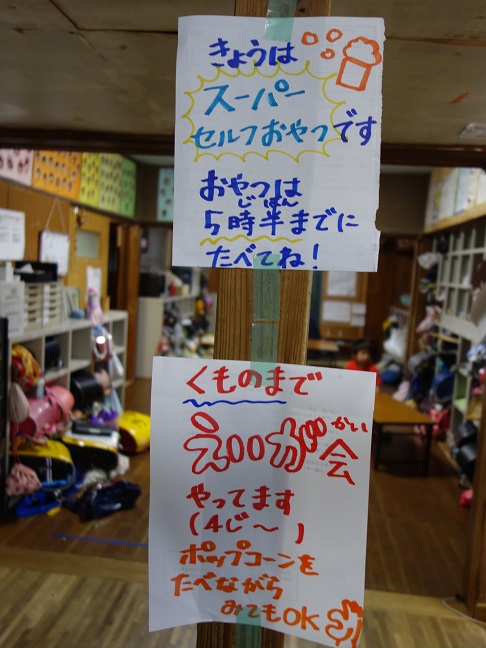 きょうは
スーパー
セルフおやつです
おやつは
じはん
5時半までに
たべてね！
くものまで
かい
えいが会
やってます
(4じ〜 )
ポップコーンを
たべながら
みてもOK